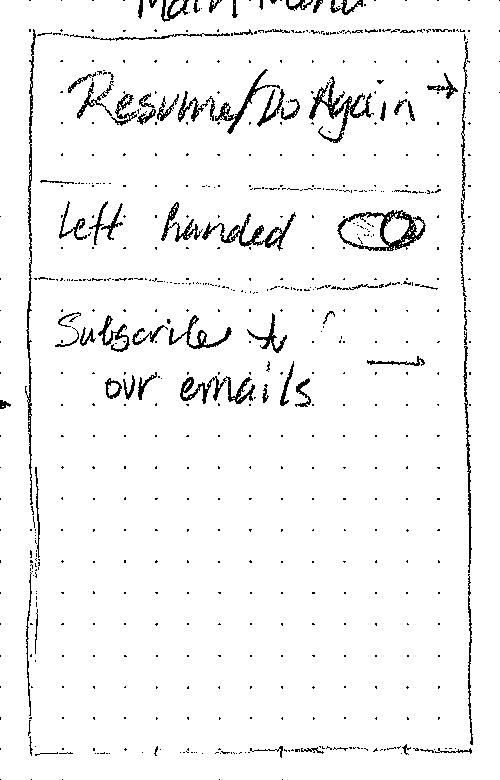 Main Menu
Resume/Do Again →
Left handed
Subscribe to
our emails →